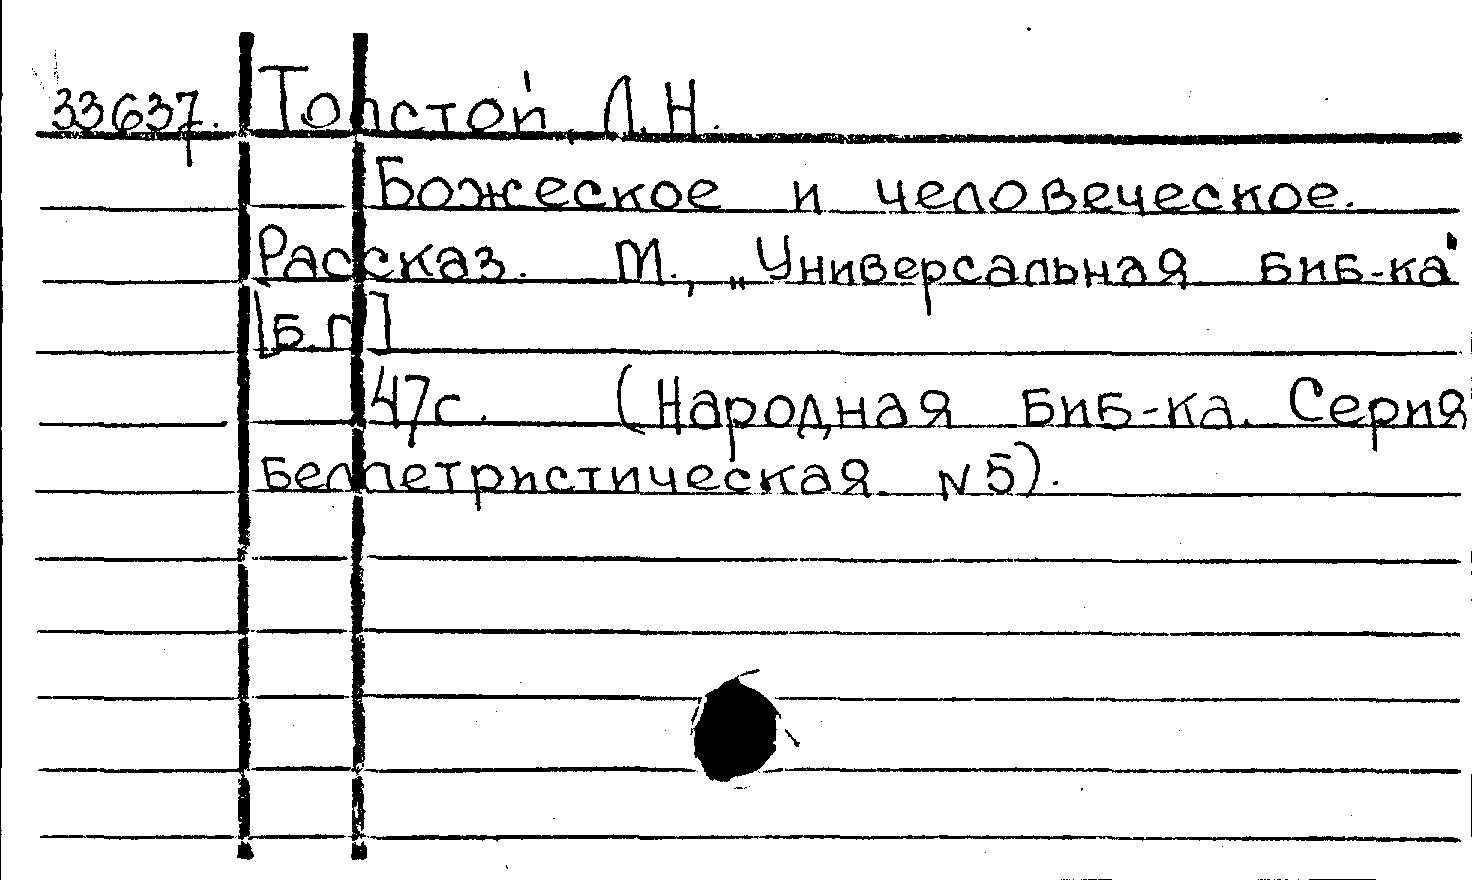 33637. Толстой Л.Н.
Божеское и человеческое.
Рассказ. М., „Универсальная биб-ка"
[б.г.]
47с. (Народная биб-ка. Серия
беллетристическая N5).